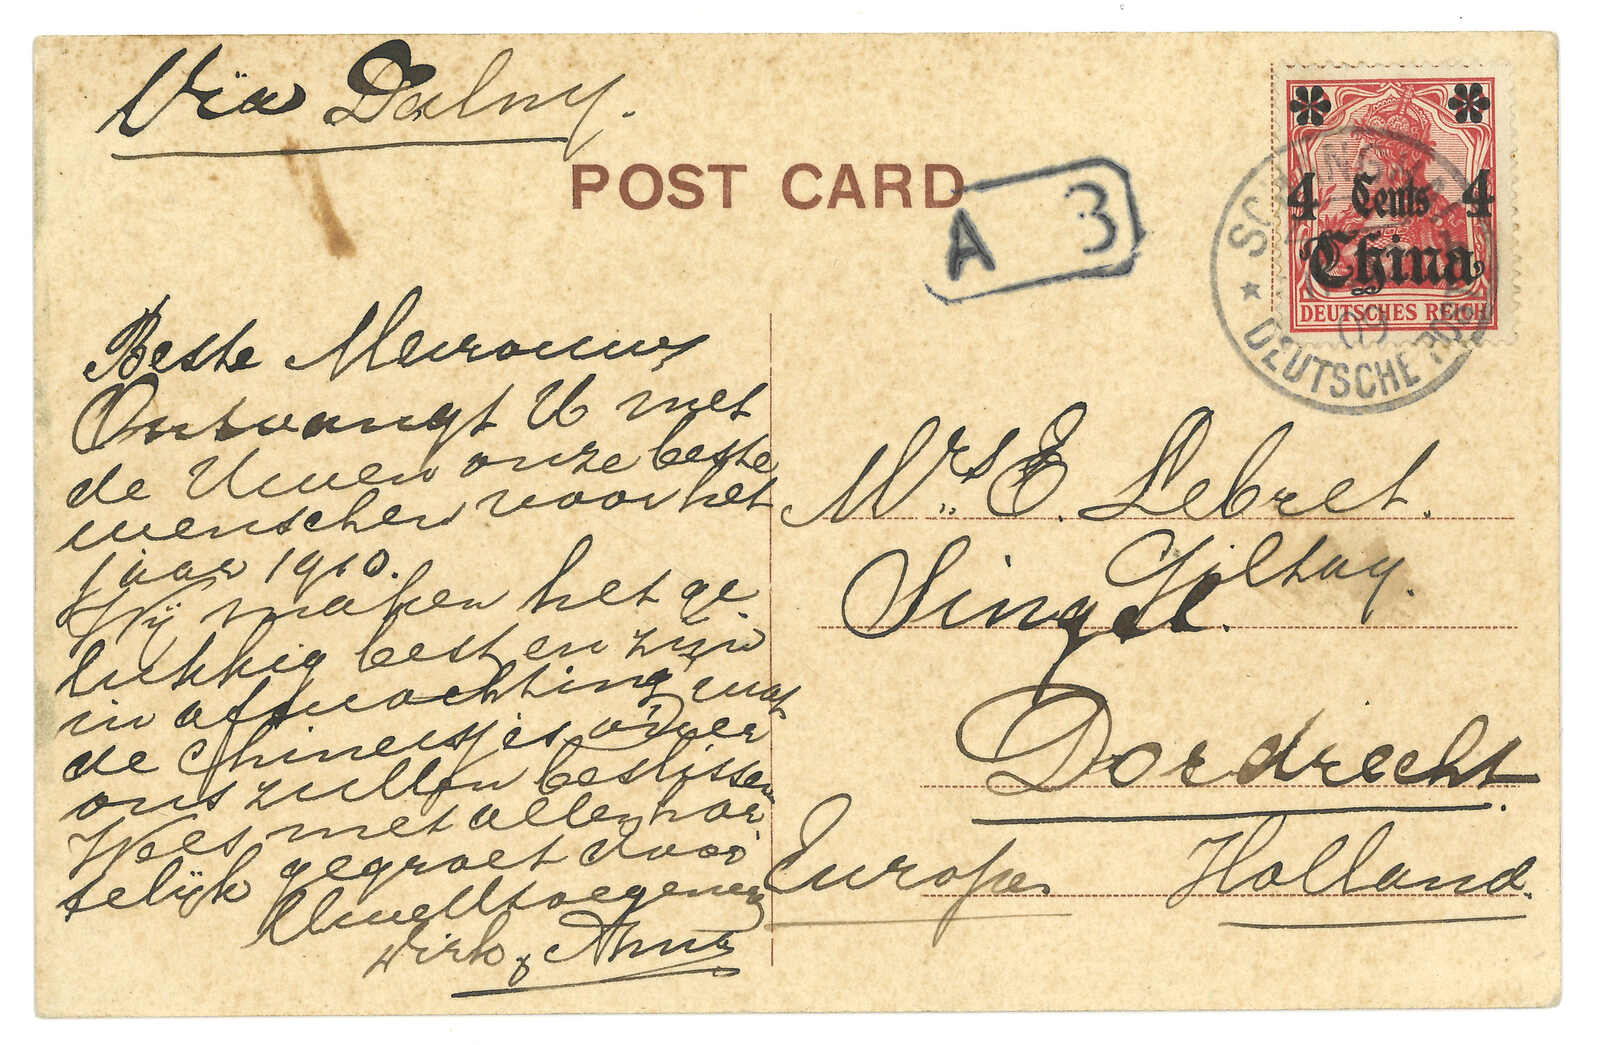 Via Dalny.
POST CARD
A 3
4 Cents 4
China
DEUTSCHES REICH
DEUTSCHE POST
09
Beste Mevrouw
Ontvangt U met
de Uwen onze beste
wenschen voor het
jaar 1910.
Wij maken het ge-
lukkig best en zijn
in afwachting wat
de Chineesjes over
ons zullen beslissen
Wees met allen har
telijk gegroet door
Uw
Dirk & Anna
Mrs. E. Lebret.
Giltay.
Singel.
Dordrecht.
Europe. Holland.